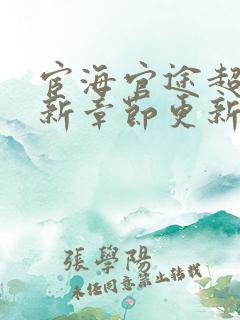 宦海官途超
新章節更新
張學陽
未经同意禁止转载